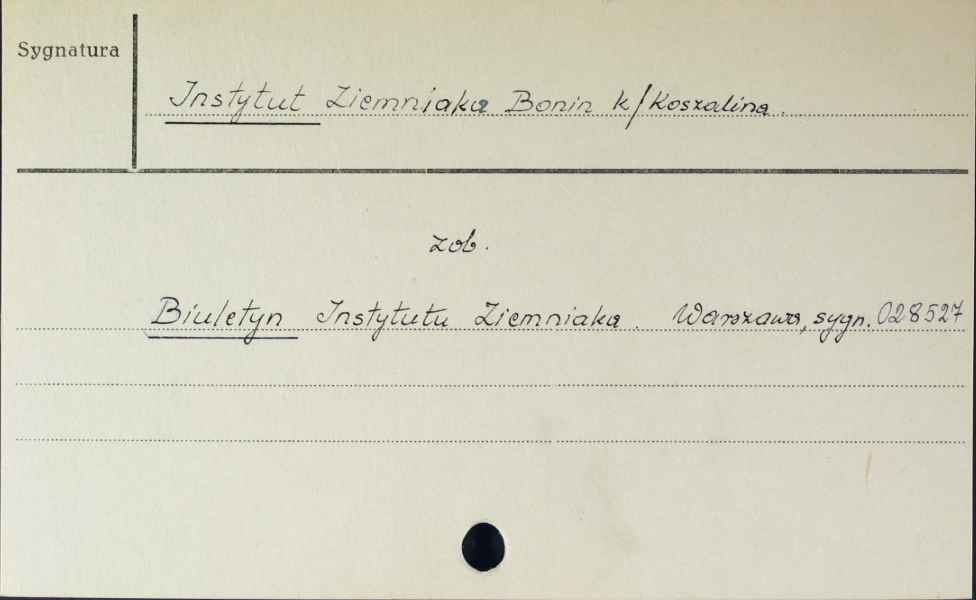 Sygnatura
Instytut Ziemniaka Bonin k/Koszalina.
zob.
Biuletyn Instytutu Ziemniaka. Warszawa, sygn. 028527